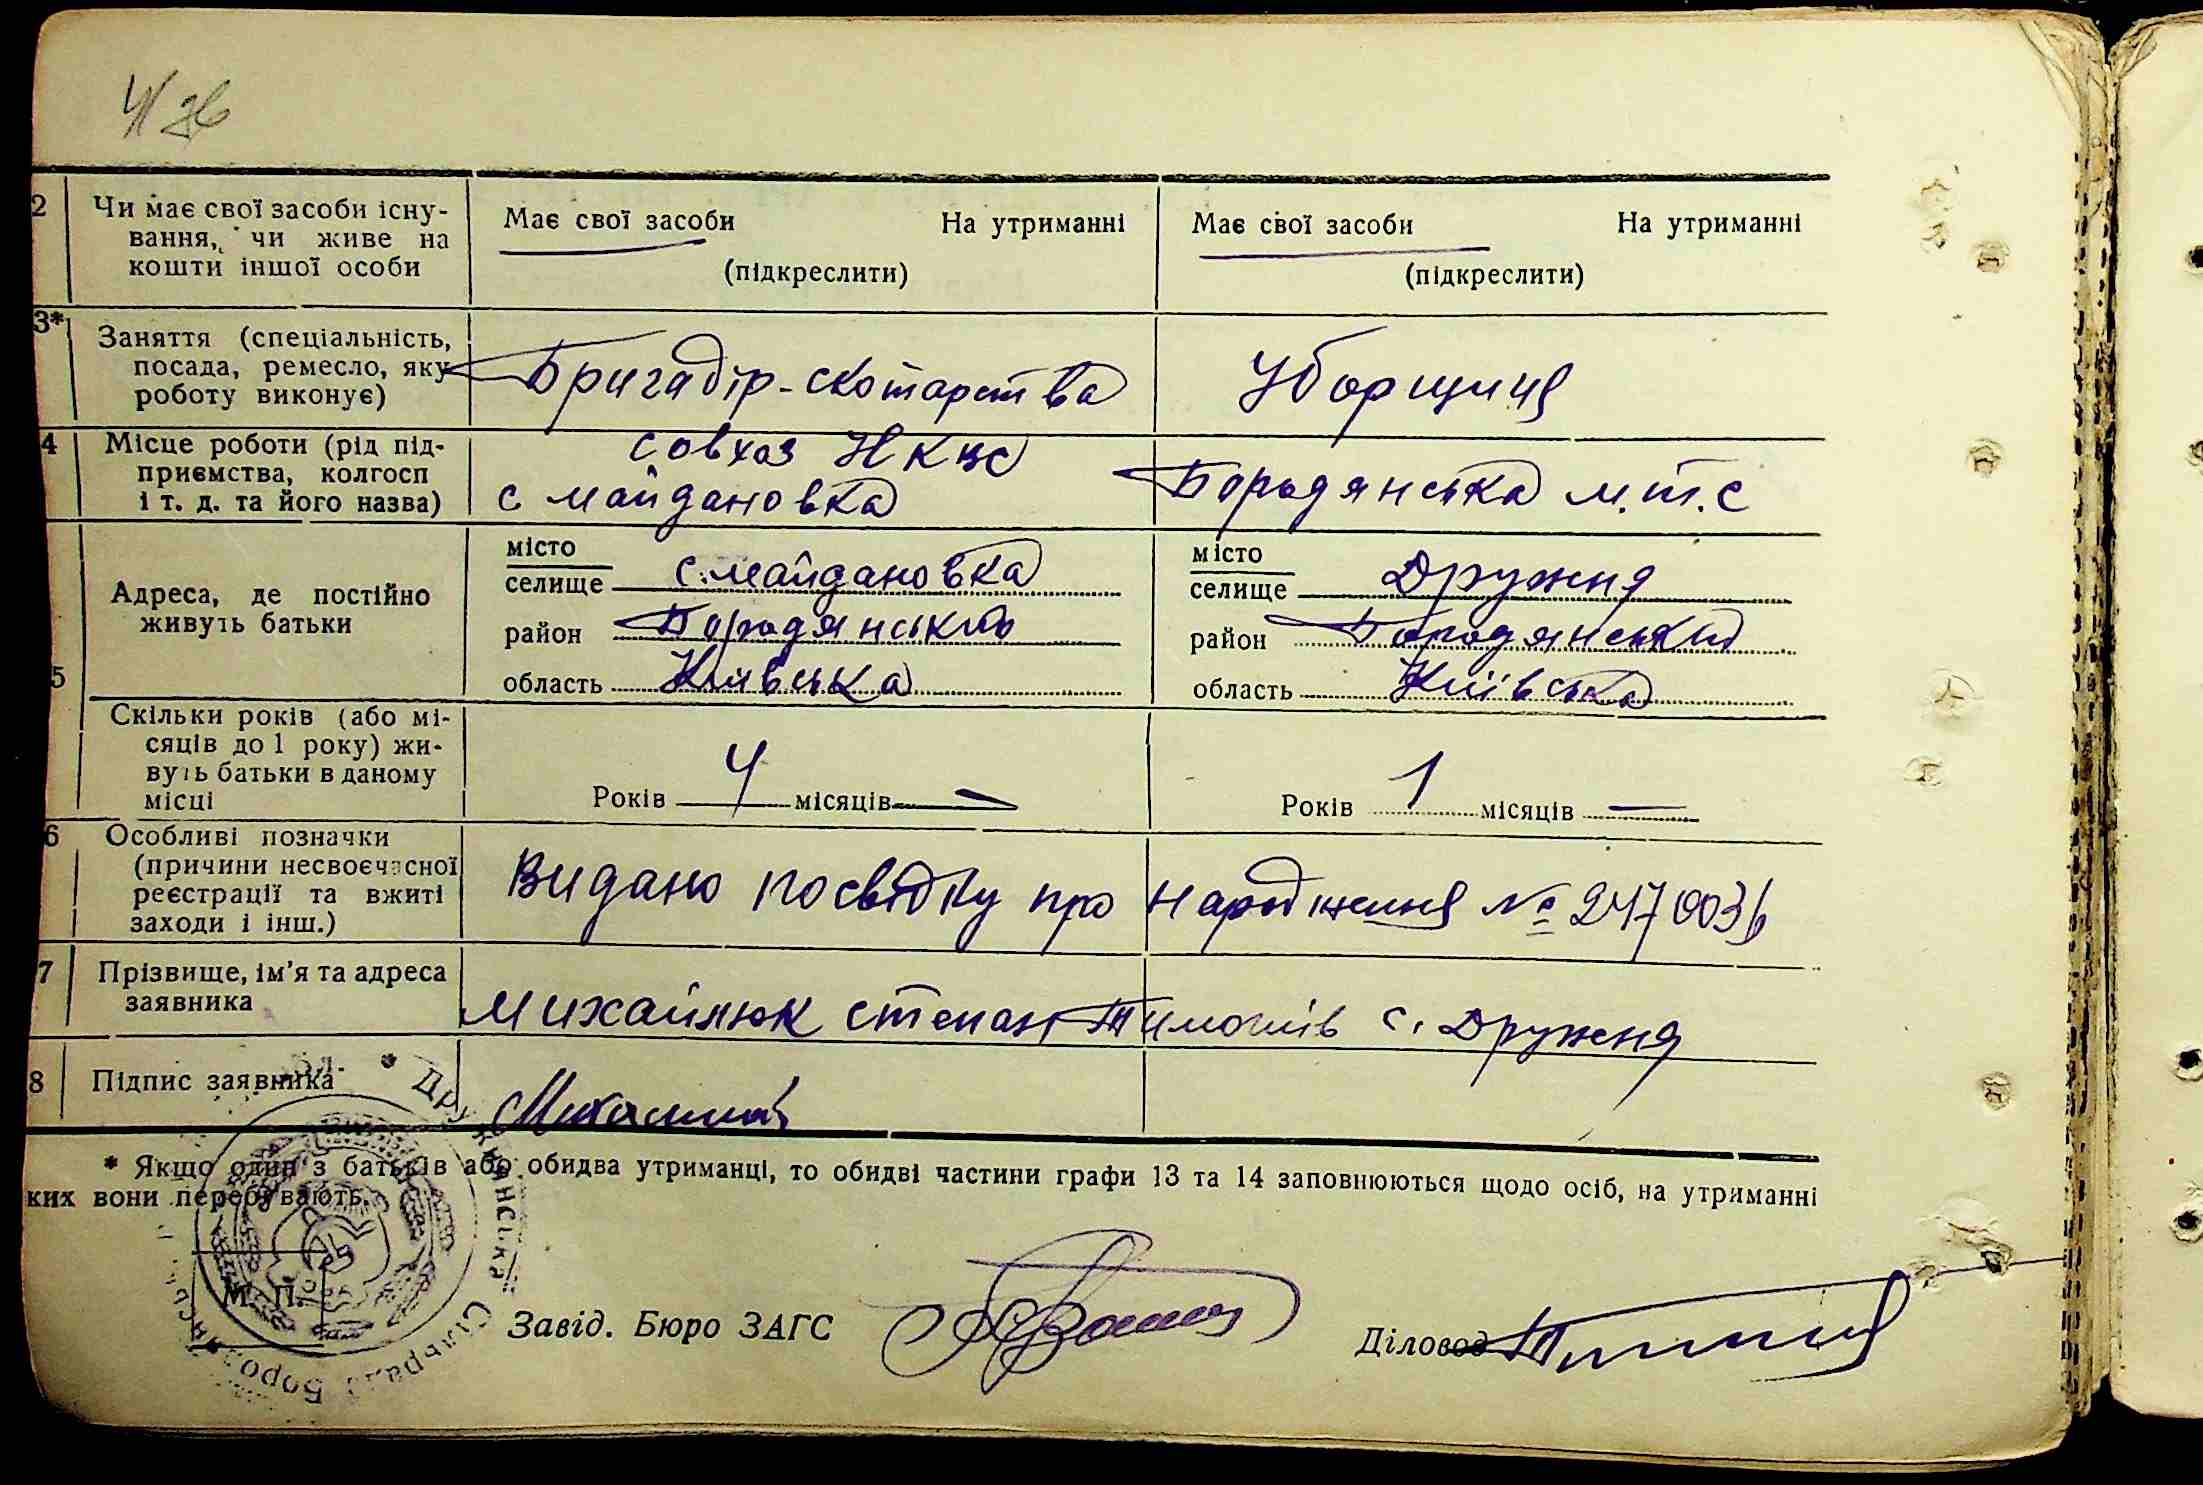 2 Чи має свої засоби існу- Має свої засоби На утриманні Має свої засоби На утриманні
вання, чи живе на
кошти іншої особи (підкреслити) (підкреслити)
3* Заняття (спеціальність,
посада, ремесло, яку Бригадір-скотарства Уборщиця
роботу виконує)
4 Місце роботи (рід під- совхоз
приємства, колгосп Бородянська м.т.с
і т. д. та його назва) с майдановка
місто місто
селище с. майдановка селище Дружня
Адреса, де постійно
живуть батьки район Бородянський район Бородянський
5 область Київська область Київська
Скільки років (або мі-
сяців до 1 року) жи-
вуть батьки в даному
місці Років 4 місяців — Років 1 місяців —
6 Особливі позначки
(причини несвоєчасної Видано посвідку про народження №
реєстрації та вжиті
заходи і інш.)
7 Прізвище, ім'я та адреса
заявника Михайлюк степан Тимошів с. Дружня
8 Підпис заявника
* Якщо один з батьків або обидва утриманці, то обидві частини графи 13 та 14 заповнюються щодо осіб, на утриманні
ких вони перебувають.
М. П.
Завід. Бюро ЗАГС Діловод